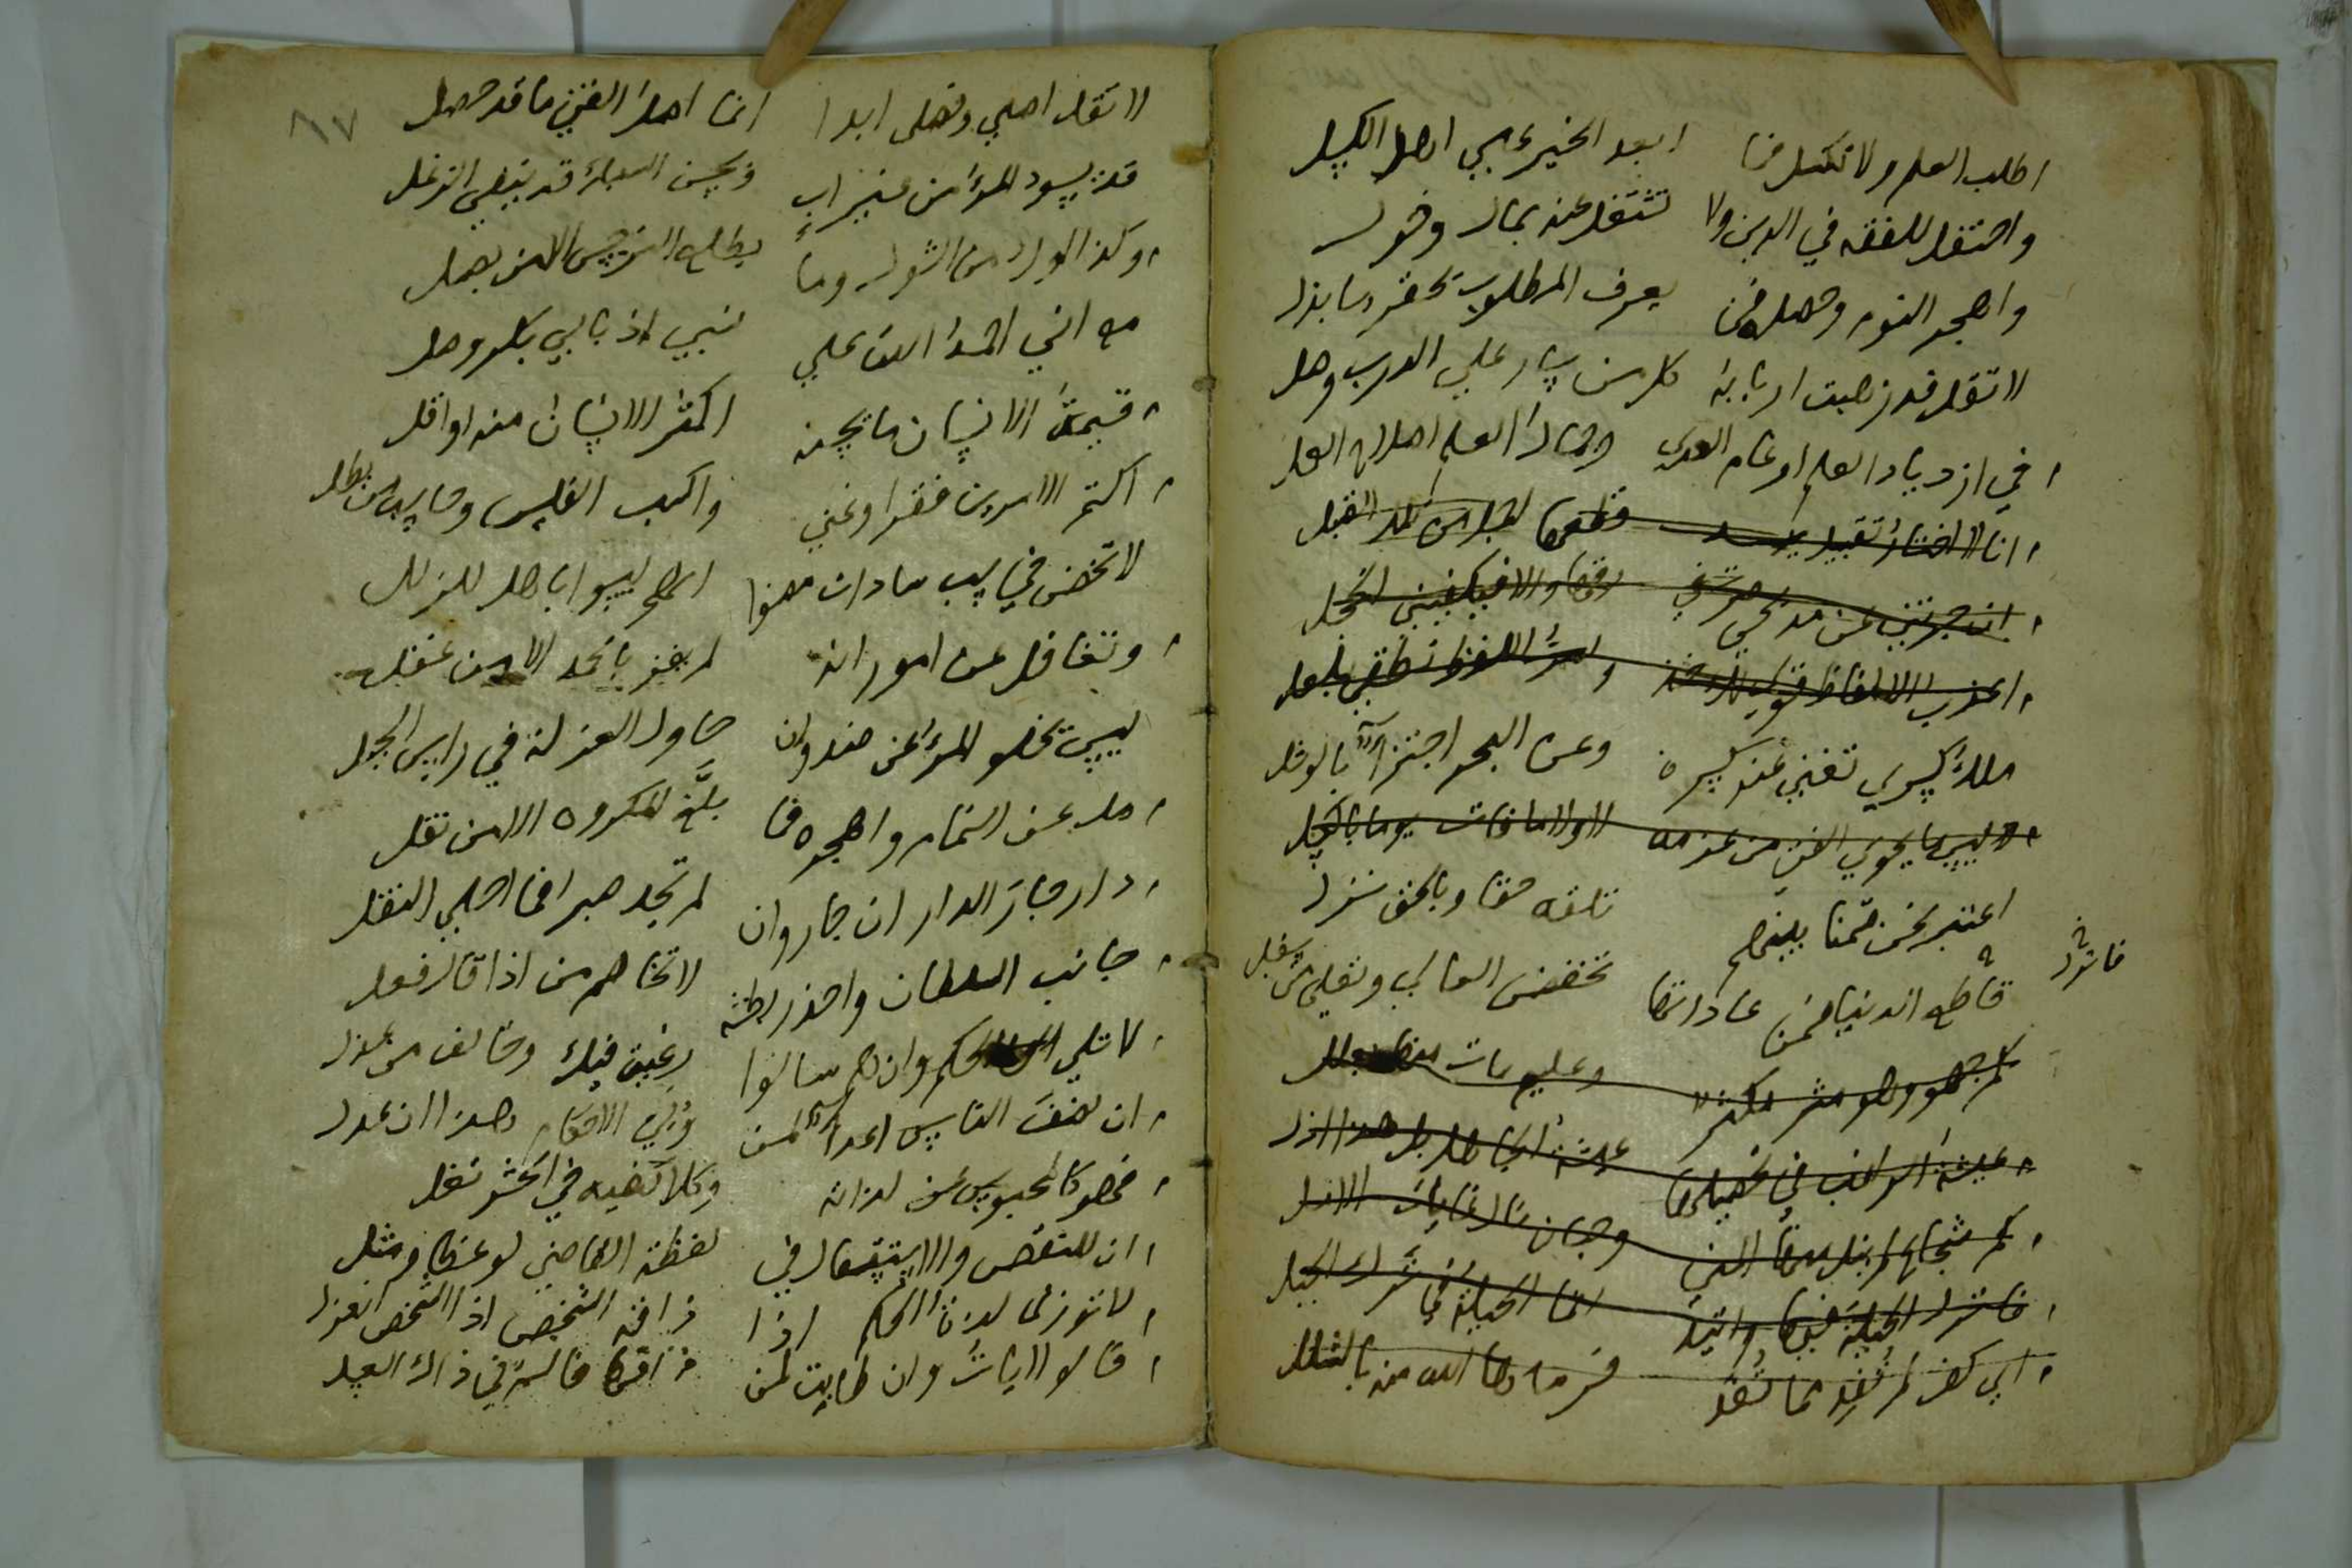 اطلب العلم ولا تكسل فما ابعد الخير علي اهل الكسل
واحتفل للفقه في الدين ولا تشتغل عنه بمال وخول
واهجر النوم وحصله فمن يعرف المطلوب يحقر ما بذل
لا تقل قد ذهبت اربابه كل من سار علي الدرب وصل
في ازدياد العلم ارغام العدي وجمال العلم اصلاح العمل
انا لا اختار تقبيل يد قطعها اجمل من تلك القبل
ان جزتني عن مديحي صرت في رقها والا فيكفيني الخجل
اعذب الالفاظ قولي لك خذ وامر اللفظ نطقي بلعل
ملك كسري تغني عنه كسرة وعن البحر اجتزاء بالوشل
ليس ما يحوي الفتي من عزمه لا ولا ما فات يوما بالكسل
اعتبر نحن قسمنا بينهم تلقه حقا وبالحق نزل
قاطع الدنيا فمن عاداتها تخفض العالي وتعلي من سفل
كم جهول وهو مثر مكثر وعليم مات منها بعلل
عيشة الراغب في تحصيلها عيشة الجاهل بل هذا اذل
كم شجاع لم ينل منها المني وجبان نال غايات الامل
فاترك الحيلة فيها واتئد انما الحيلة في ترك الحيل
اي كف لم تفد مما تفد فرماها الله منه بالشلل
فاترك
٨٧
لا تقل اصلي وفصلي ابدا انما اصل الفتي ما قد حصل
قد يسود المرء من غير اب وبحسن السبك قد ينفي الزغل
وكذا الورد من الشوك وما يطلع النرجس الا من بصل
مع اني احمد الله علي نسبي اذ بابي بكر وصل
قيمة الانسان ما يحسنه اكثر الانسان منه او اقل
اكتم الامرين فقرا وغني واكسب الفلس وحاسب من بطل
لا تخض في سب سادات مضوا انهم ليسوا باهل للزلل
وتغافل عن امور انه لم يفز بالحمد الا من غفل
ليس يخلو المرء من ضد وان حاول العزلة في راس الجبل
مل عن النمام واهجره فما بلغ المكروه الا من نقل
دار جار الدار ان جار وان لم تجد صبرا فما احلي النقل
جانب السلطان واحذر بطشه لا تخاصم من اذا قال فعل
لا تلي الحكم وان هم سالوا رغبة فيك وخالف من عذل
ان نصف الناس اعداء لمن ولي الاحكام هذا ان عدل
فهو كالمحبوس عن لذاته وكلا كفيه في الحشر تغل
ان للنقص والاستثقال في لفظة القاضي لوعظا ومثل
لا توازي لذة الحكم اذا ذاقه الشخص اذا الشخص انعزل
فالولايات وان طابت لمن ذاقها فالسم في ذاك العسل